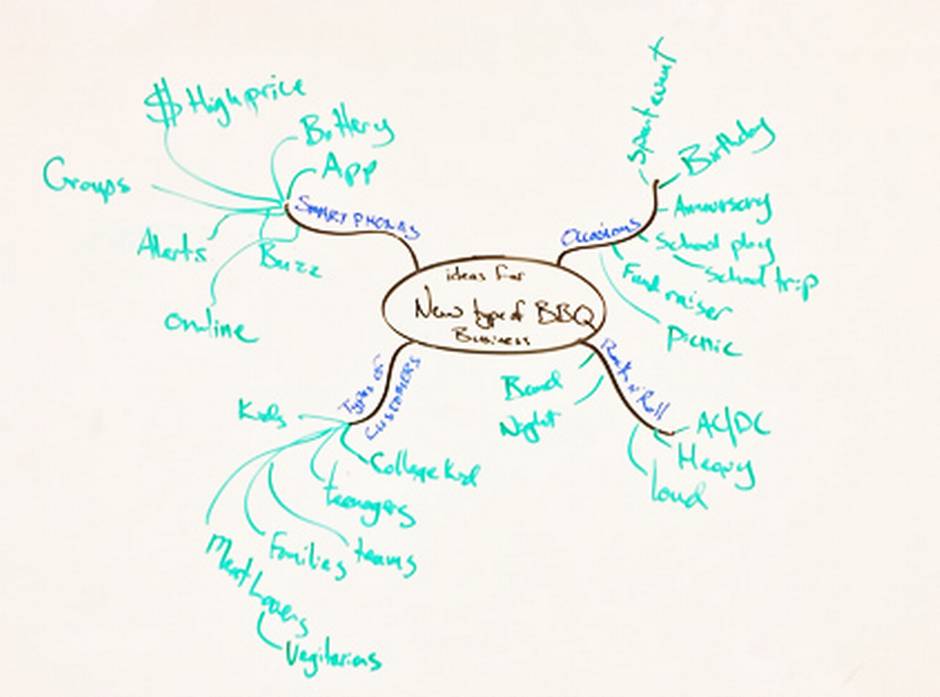 ideas for
New type of BBQ
Business
SMART PHONES
$ High price
Battery
App
Groups
Alerts
Buzz
online
Occasions
Sport event
Birthday
Anniversary
School play
School trip
Fund raiser
Picnic
Rock n' Roll
Band
Night
AC/DC
Heavy
loud
Types of
CUSTOMERS
Kids
College kid
teenagers
teams
Families
Meat Lovers
Vegitarians